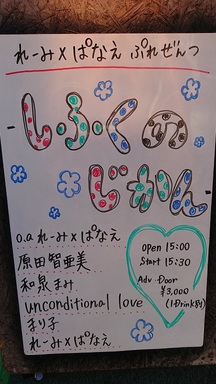 れーみ×ぱなえ ぷれぜんつ
しふくの
じかん
o.a れーみ×ぱなえ
原田智亜美
和泉まみ
unconditional love
まり子
れーみ×ぱなえ
open 15:00
Start 15:30
Adv Door
¥3,000
(1Drink付)